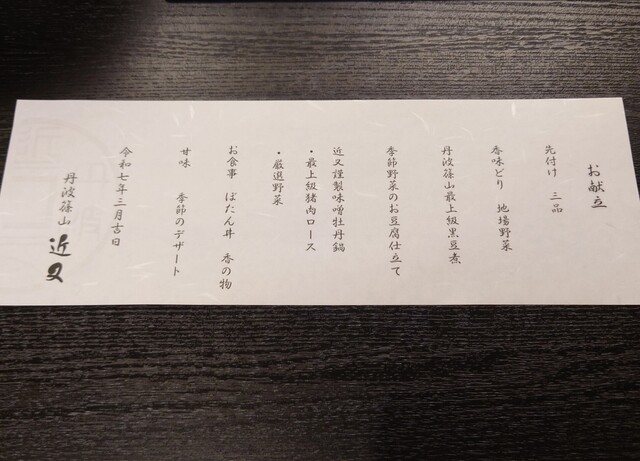 お献立
先付け 三品
香味どり 地場野菜
丹波篠山最上級黒豆煮
季節野菜のお豆腐仕立て
近又謹製味噌牡丹鍋
・最上級猪肉ロース
・厳選野菜
お食事 ぼたん丼 香の物
甘味 季節のデザート
令和七年三月吉日
丹波篠山 近又